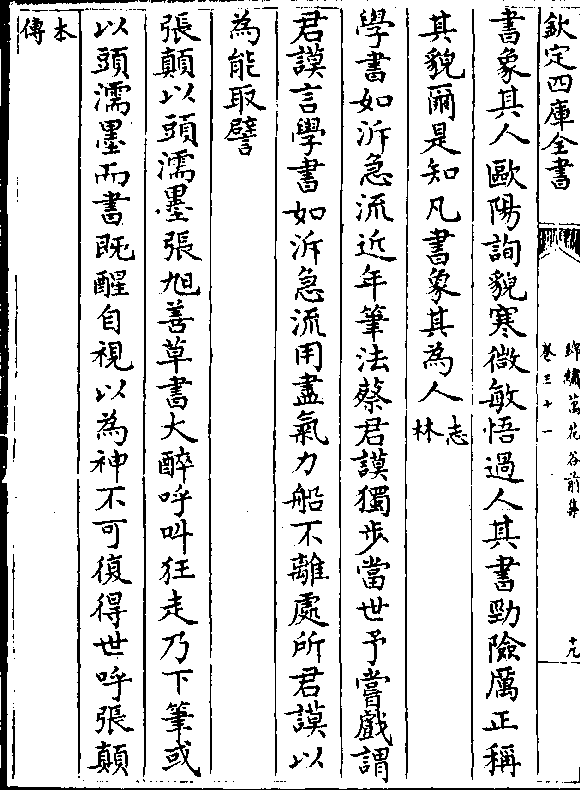 欽定四庫全書
錦繡萬花谷前集
卷三十一
十九
書象其人歐陽詢貌寒微敏悟過人其書勁險厲正稱
其貌爾是知凡書象其為人志林
學書如泝急流近年筆法蔡君謨獨步當世予嘗戲謂
君謨言學書如泝急流用盡氣力船不離處所君謨以
為能取譬
張顛以頭濡墨張旭善草書大醉呼叫狂走乃下筆或
以頭濡墨而書既醒自視以為神不可復得世呼張顛
本傳